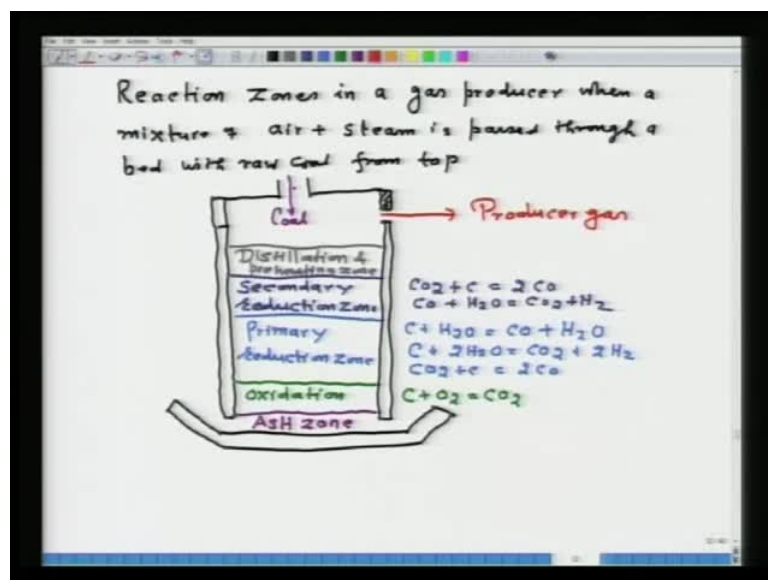 Reaction Zones in a gas producer when a
mixture of air + steam is passed through a
bed with raw coal from top
Coal
Producer gas
Distillation &
preheating zone
Secondary
reduction zone
CO2 + C = 2 CO
CO + H2O = CO2 + H2
Primary
reduction zone
C + H2O = CO + H2O
C + 2H2O = CO2 + 2H2
CO2 + C = 2 CO
Oxidation
C + O2 = CO2
ASH Zone